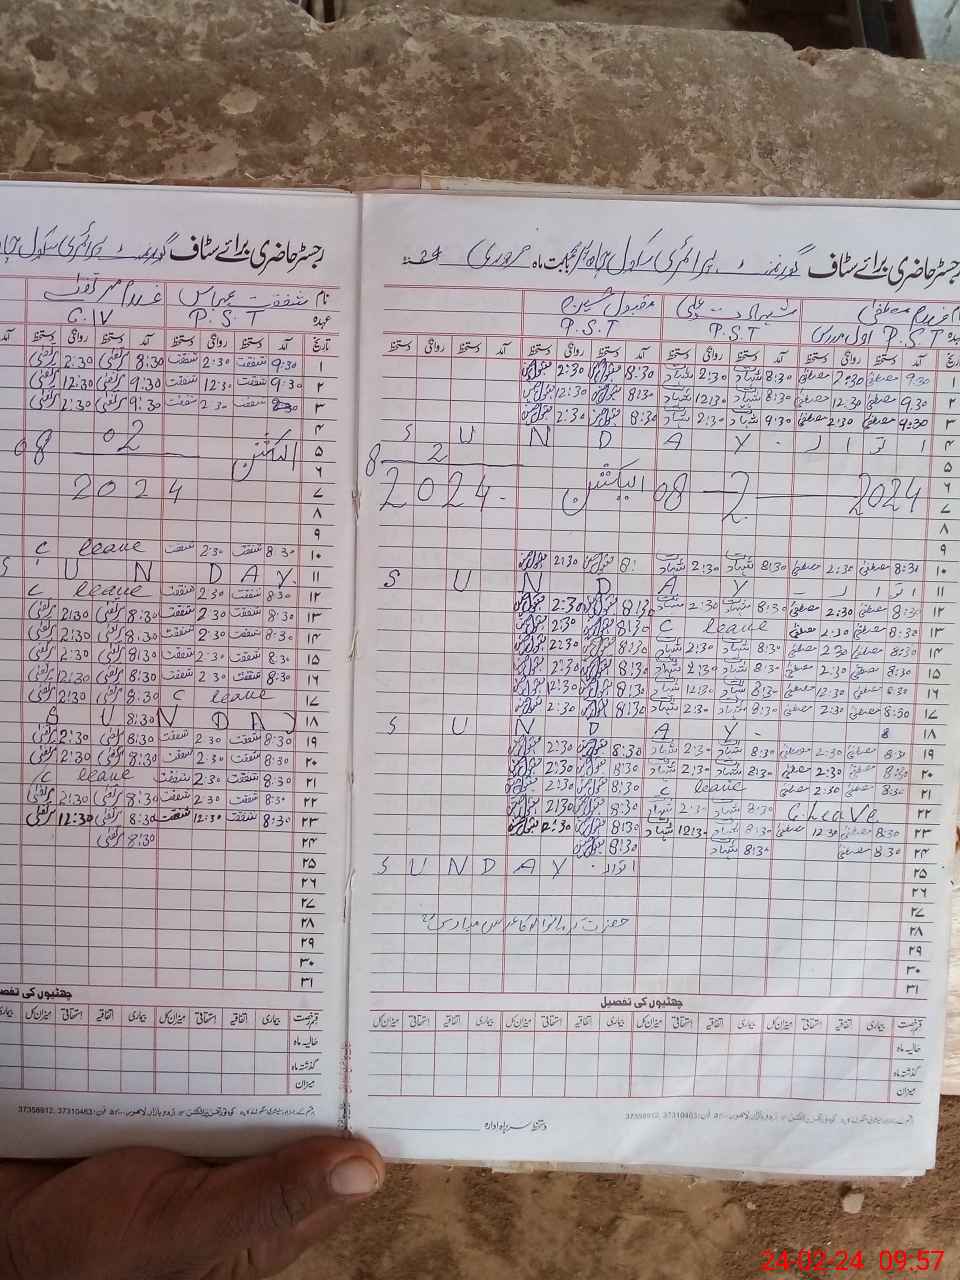 رجسٹر حاضری برائے سٹاف گورنمنٹ پرائمری سکول بابت ماہ فروری 24
نام غلام مصطفیٰ شہادت علی مقبول حسین
عہدہ P.S.T اول مدرس P.S.T P.S.T
تاریخ آمد دستخط روانگی دستخط آمد دستخط روانگی دستخط آمد دستخط روانگی دستخط آمد دستخط روانگی دستخط
۱ 9:30 مصطفیٰ 2:30 مصطفیٰ 8:30 شہادت 2:30 شہادت 8:30 مقبول حسین 2:30 مقبول حسین
۲ 9:30 مصطفیٰ 12:30 مصطفیٰ 8:30 شہادت 12:30 شہادت 8:30 مقبول حسین 12:30 مقبول حسین
۳ 9:30 مصطفیٰ 2:30 مصطفیٰ 9:30 شہادت 2:30 شہادت 8:30 مقبول حسین 2:30 مقبول حسین
۴ اتوار SUNDAY
۵
۶ 08-2-2024 الیکشن 8-2-2024
۷
۸
۹
۱۰ 8:30 مصطفیٰ 2:30 مصطفیٰ 8:30 شہادت 2:30 شہادت 8: مقبول حسین 2:30 مقبول حسین
۱۱ اتوار SUNDAY
۱۲ 8:30 مصطفیٰ 2:30 مصطفیٰ 8:30 شہادت 2:30 شہادت 8:30 مقبول حسین 2:30 مقبول حسین
۱۳ 8:30 مصطفیٰ 2:30 مصطفیٰ C leave 8:30 مقبول حسین 2:30 مقبول حسین
۱۴ 8:30 مصطفیٰ 2:30 مصطفیٰ 8:30 شہادت 2:30 شہادت 8:30 مقبول حسین 2:30 مقبول حسین
۱۵ 8:30 مصطفیٰ 2:30 مصطفیٰ 8:30 شہادت 2:30 شہادت 8:30 مقبول حسین 2:30 مقبول حسین
۱۶ 8:30 مصطفیٰ 12:30 مصطفیٰ 8:30 شہادت 12:30 شہادت 8:30 مقبول حسین 12:30 مقبول حسین
۱۷ 8:30 مصطفیٰ 2:30 مصطفیٰ 8:30 شہادت 2:30 شہادت 8:30 مقبول حسین 2:30 مقبول حسین
۱۸ 8 SUNDAY
۱۹ 8:30 مصطفیٰ 2:30 مصطفیٰ 8:30 شہادت 2:30 شہادت 8:30 مقبول حسین 2:30 مقبول حسین
۲۰ 8:30 مصطفیٰ 2:30 مصطفیٰ 8:30 شہادت 2:30 شہادت 8:30 مقبول حسین 2:30 مقبول حسین
۲۱ 8:30 مصطفیٰ 2:30 مصطفیٰ C leave 8:30 مقبول حسین 2:30 مقبول حسین
۲۲ C.Leave 8:30 شہادت 2:30 شہادت 8:30 مقبول حسین 2:30 مقبول حسین
۲۳ 8:30 مصطفیٰ 12:30 مصطفیٰ 8:30 شہادت 12:30 شہادت 8:30 مقبول حسین 2:30 مقبول حسین
۲۴ 8:30 مصطفیٰ 8:30 شہادت 8:30 مقبول حسین
۲۵ اتوار SUNDAY
۲۶
۲۷
۲۸ حضرت
۲۹
۳۰
۳۱
چھٹیوں کی تفصیل
قسم رخصت بیماری اتفاقیہ استحقاقی میزان کل بیماری اتفاقیہ استحقاقی میزان کل بیماری اتفاقیہ استحقاقی میزان کل
حالیہ ماہ
گذشتہ ماہ
میزان
فون: 37310463, 37358912
دستخط سربراہ ادارہ
رجسٹر حاضری برائے سٹاف گورنمنٹ پرائمری سکول
نام شفقت عباس غلام مرتضیٰ
عہدہ P.S.T C.IV
تاریخ آمد دستخط روانگی دستخط آمد دستخط روانگی دستخط آمد
۱ 9:30 شفقت 2:30 شفقت 8:30 مرتضیٰ 2:30 مرتضیٰ
۲ 9:30 شفقت 12:30 شفقت 9:30 مرتضیٰ 12:30 مرتضیٰ
۳ شفقت 2:30 شفقت 9:30 مرتضیٰ 2:30 مرتضیٰ
۴
۵ الیکشن 08 02
۶
۷ 2024
۸
۹
۱۰ 8:30 شفقت 2:30 شفقت C leave
۱۱ SUNDAY
۱۲ 8:30 شفقت 2:30 شفقت C leave
۱۳ 8:30 شفقت 2:30 شفقت 8:30 مرتضیٰ 2:30 مرتضیٰ
۱۴ 8:30 شفقت 2:30 شفقت 8:30 مرتضیٰ 2:30 مرتضیٰ
۱۵ 8:30 شفقت 2:30 شفقت 8:30 مرتضیٰ 2:30 مرتضیٰ
۱۶ 8:30 شفقت 2:30 شفقت 8:30 مرتضیٰ 12:30 مرتضیٰ
۱۷ C leave 8:30 مرتضیٰ 2:30 مرتضیٰ
۱۸ SUNDAY 8:30
۱۹ 8:30 شفقت 2:30 شفقت 8:30 مرتضیٰ 2:30 مرتضیٰ
۲۰ 8:30 شفقت 2:30 شفقت 8:30 مرتضیٰ 2:30 مرتضیٰ
۲۱ 8:30 شفقت 2:30 شفقت C leave
۲۲ 8:30 شفقت 2:30 شفقت 8:30 مرتضیٰ 2:30 مرتضیٰ
۲۳ 8:30 شفقت 12:30 شفقت 8:30 مرتضیٰ 12:30 مرتضیٰ
۲۴ 8:30 مرتضیٰ
۲۵
۲۶
۲۷
۲۸
۲۹
۳۰
۳۱
چھٹیوں کی تفصیل
قسم رخصت بیماری اتفاقیہ استحقاقی میزان کل بیماری اتفاقیہ استحقاقی میزان کل بیماری
حالیہ ماہ
گذشتہ ماہ
میزان
فون: 37310463, 37358912
24-02-24 09:57